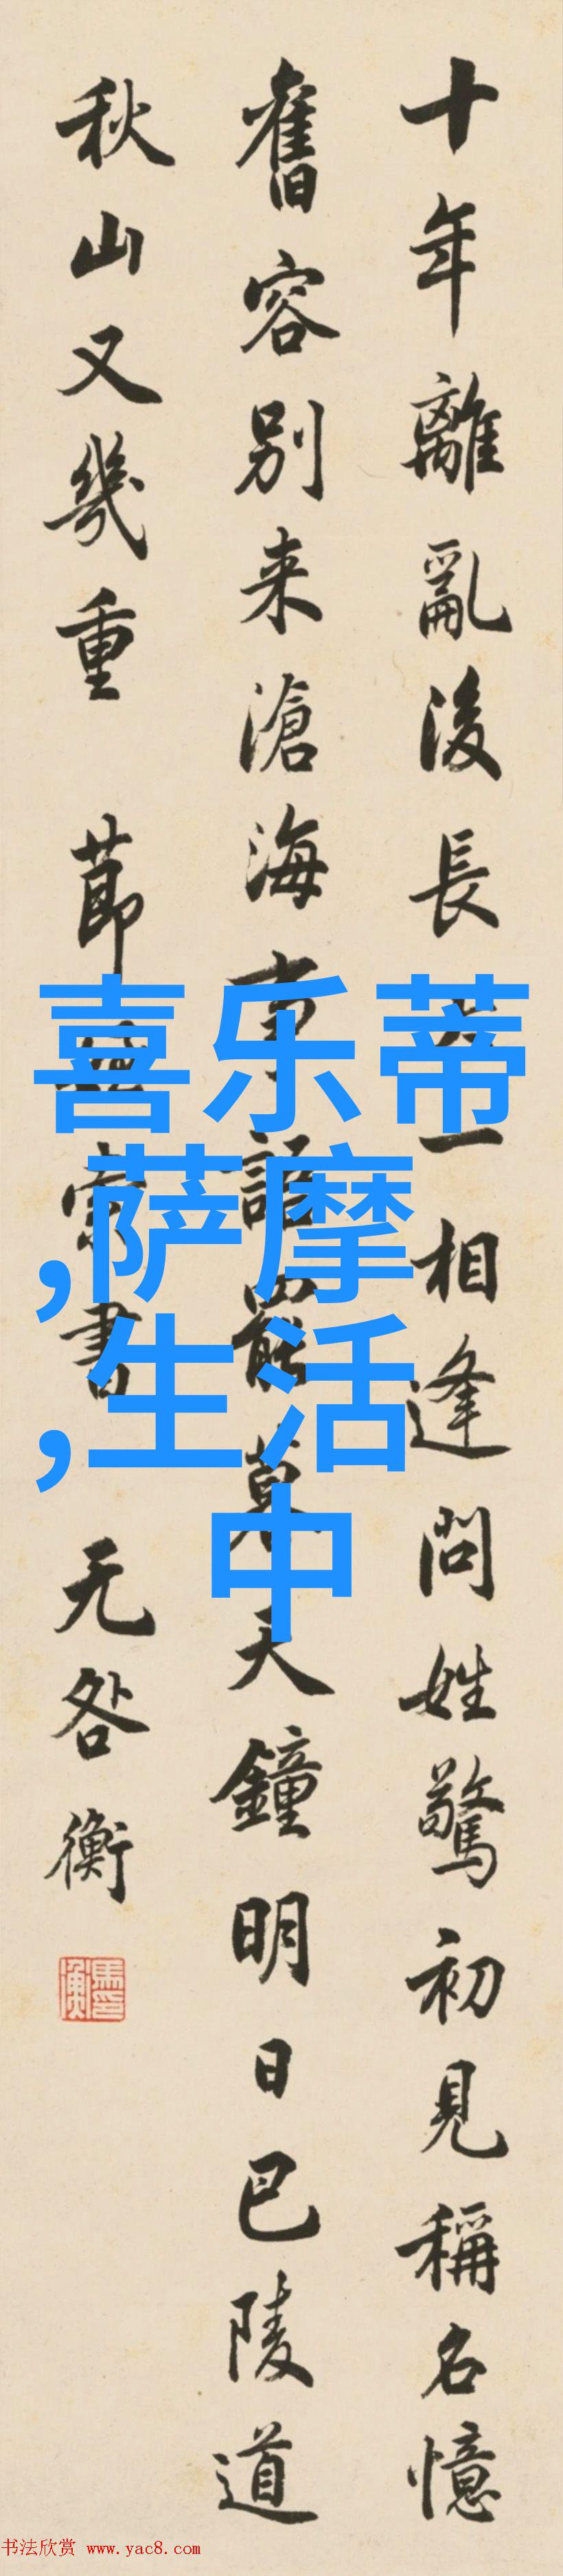 十年離亂後長一相逢問姓驚初見稱名憶
舊容別来滄海事語罷暮天鐘明日巴陵道
秋山又幾重 節索書 无咎衡
馬衡
喜乐蒂
,萨摩
,生活
中
书法欣赏 www.yac8.com